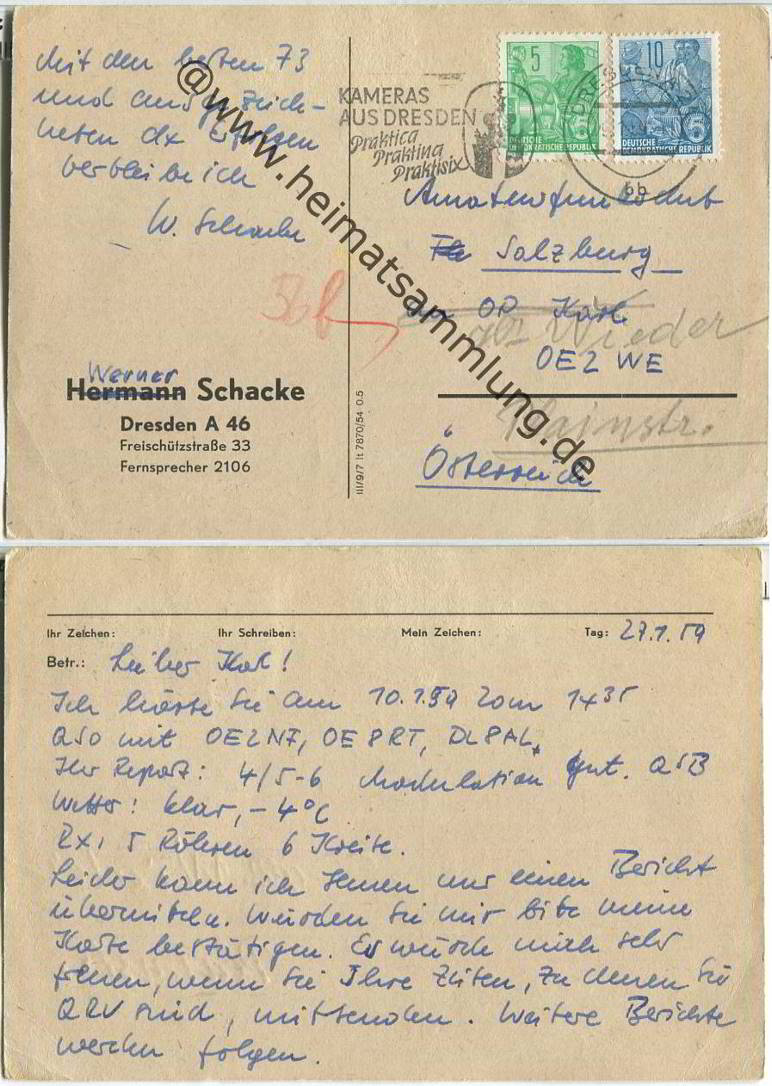 Mit den besten 73
und ausgezeich-
neten dx Erfolgen
verbleibe ich
W. Schacke
KAMERAS
AUS DRESDEN
Praktica
Praktina
Praktisix
5
DEUTSCHE
DEMOKRATISCHE REPUBLIK
10
DEUTSCHE
DEMOKRATISCHE REPUBLIK
DRESDEN
bb
Amateurfunkclub
Salzburg
OP Karl
Wieder
OE2WE
Hainstr.
Österreich
Werner
Hermann Schacke
Dresden A 46
Freischützstraße 33
Fernsprecher 2106
III/9/7 It 7870/54 0.5
@www.heimatsammlung.de
Ihr Zeichen: Ihr Schreiben: Mein Zeichen: Tag: 27.1.59
Betr.: Lieber Karl!
Ich hörte Sie am 10.1.59 20m 14³⁵
QSO mit OE2NF, OE8RT, DL8AL,
Ihr Report: 4/5-6 Modulation gut. QSB
Wetter: klar, -4°C
Rx: 5 Röhren 6 Kreise.
Leider kann ich Ihnen nur einen Bericht
übermitteln. Würden Sie mir bitte meine
Karte bestätigen. Es würde mich sehr
freuen, wenn Sie Ihre Zeiten, zu denen Sie
QRV sind, mitsenden. Weitere Berichte
werden folgen.